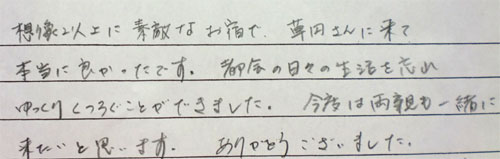 想像以上に素敵なお宿で、草円さんに来て
本当に良かったです。都会の日々の生活を忘れ
ゆっくりくつろぐことができました。今度は両親も一緒に
来たいと思います。ありがとうございました。